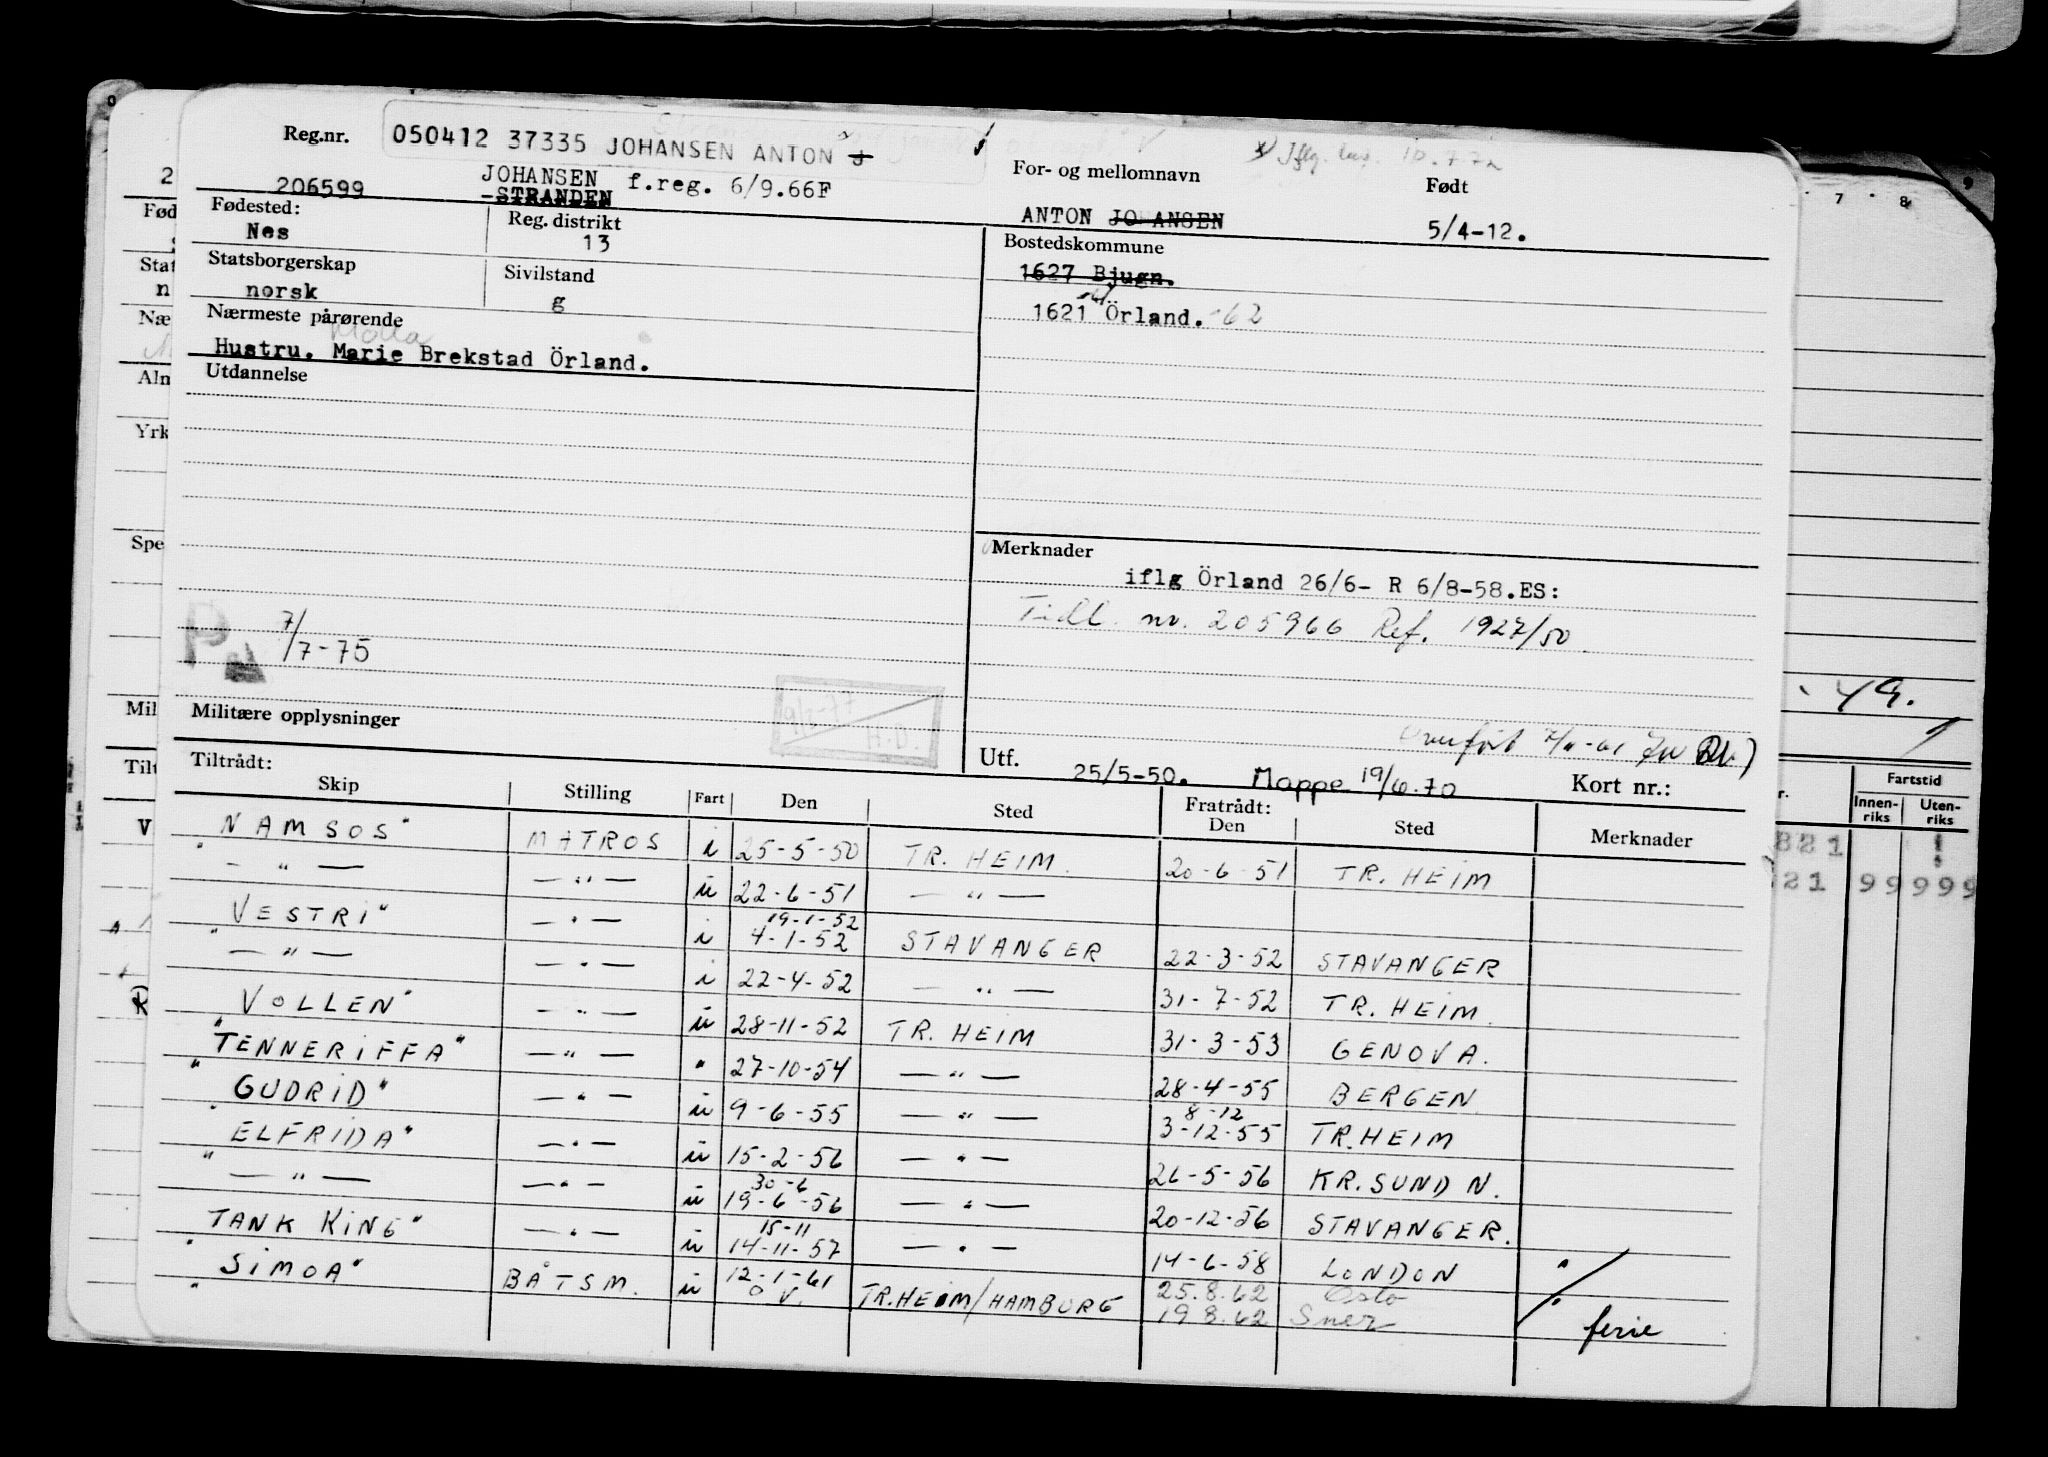 Reg.nr. 050412 37335 JOHANSEN ANTON J
206599 JOHANSEN f.reg. 6/9.66F
STRANDEN
For- og mellomnavn Født
ANTON JO ANSEN 5/4-12.
Fødested: Nes
Reg. distrikt 13
Bostedskommune
1627 Bjugn.
1621 Örland. -62
Statsborgerskap norsk
Sivilstand g
Nærmeste pårørende
Hustru. Marie Brekstad Örland.
Utdannelse
Merknader
iflg Örland 26/6- R 6/8-58.ES:
Tidl. nr. 205966 Ref. 1927/50.
7/7-75
9/2-77 H.D.
Militære opplysninger
Utf. 25/5-50. Mappe 19/6.70 Kort nr.:
Tiltrådt: Fratrådt:
Skip Stilling Fart Den Sted Den Sted Merknader
"NAMSOS" MATROS i 25-5-50 TR. HEIM. 20-6-51 TR. HEIM
— " — — " — u 22-6-51 — " —
"VESTRI" — " — i 19-1-52 4-1-52 STAVANGER 22-3-52 STAVANGER
— " — — " — i 22-4-52 — " — 31-7-52 TR. HEIM.
"VOLLEN" — " — u 28-11-52 TR. HEIM 31-3-53 GENOVA.
"TENNERIFFA" — " — " 27-10-54 — " — 28-4-55 BERGEN
"GUDRID" — " — u 9-6-55 — " — 8-12 3-12-55 TR.HEIM
"ELFRIDA" — " — u 15-2-56 — " — 26-5-56 KR.SUND N.
— " — — " — u 30-6 19-6-56 — " — 20-12-56 STAVANGER.
"TANK KING" — " — u 15-11 14-11-57 — " — 14-6-58 LONDON
"SIMOA" BÅTSM. u 12-1-61 TR.HEIM/HAMBURG 25.8.62 Oslo
19.8.62 ferie
Fartstid
Innen-riks Uten-riks
821
21 99 999